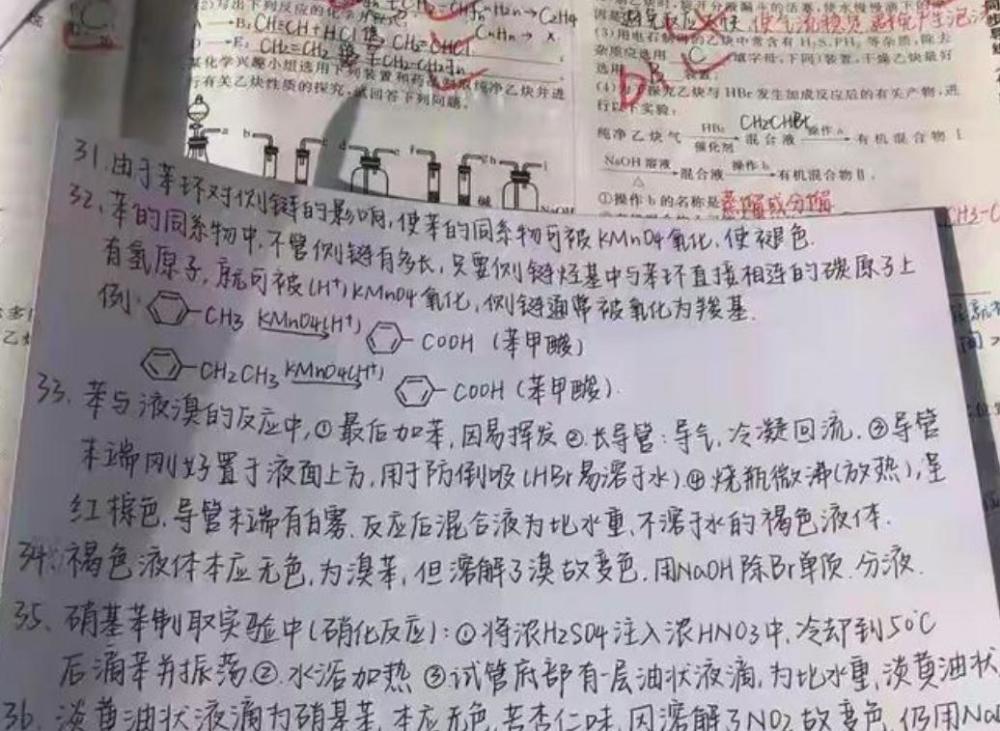 CH≡CH+HCl CH2=CHCl
CnHn→x.
化学兴趣小组选用下列装置和药品制取纯净乙炔并进
行有关乙炔性质的探究,试回答下列问题。
a b c d e f g h i
(3)用电石制得的乙炔中常含有 H2S、PH3 等杂质,除去
杂质应选用 C (填字母,下同)装置,干燥乙炔最好
选用 B 装置.
(4)为了探究乙炔与HBr发生加成反应后的有关产物,进
行以下实验:
纯净乙炔气 HBr 催化剂 混合液 操作a 有机混合物Ⅰ
CH2CHBr
NaOH溶液 △ 混合液 操作b 有机混合物Ⅱ.
①操作b的名称是蒸馏或分馏
31.由于苯环对侧链的影响,使苯的同系物可被KMnO4氧化,使褪色.
32、苯的同系物中,不管侧链有多长,只要侧链烃基中与苯环直接相连的碳原子上
有氢原子,就可被(H+)KMnO4氧化,侧链通常被氧化为羧基.
例: -CH3 KMnO4(H+) -COOH (苯甲酸)
-CH2CH3 KMnO4(H+) -COOH (苯甲酸).
33、苯与液溴的反应中,①最后加苯,因易挥发②.长导管:导气,冷凝回流.③导管
末端刚好置于液面上方,用于防倒吸(HBr易溶于水)④烧瓶微沸(放热),呈
红棕色,导管末端有白雾.反应后混合液为比水重,不溶于水的褐色液体.
34.褐色液体本应无色,为溴苯,但溶解了溴故变色.用NaOH除Br单质.分液.
35、硝基苯制取实验中(硝化反应):①将浓H2SO4注入浓HNO3中,冷却到50℃
后滴苯并振荡②.水浴加热 ③试管底部有一层油状液滴,为比水重,淡黄油状
36.淡黄油状液滴为硝基苯,本应无色,苦杏仁味,因溶解了NO2故变色.仍用Na